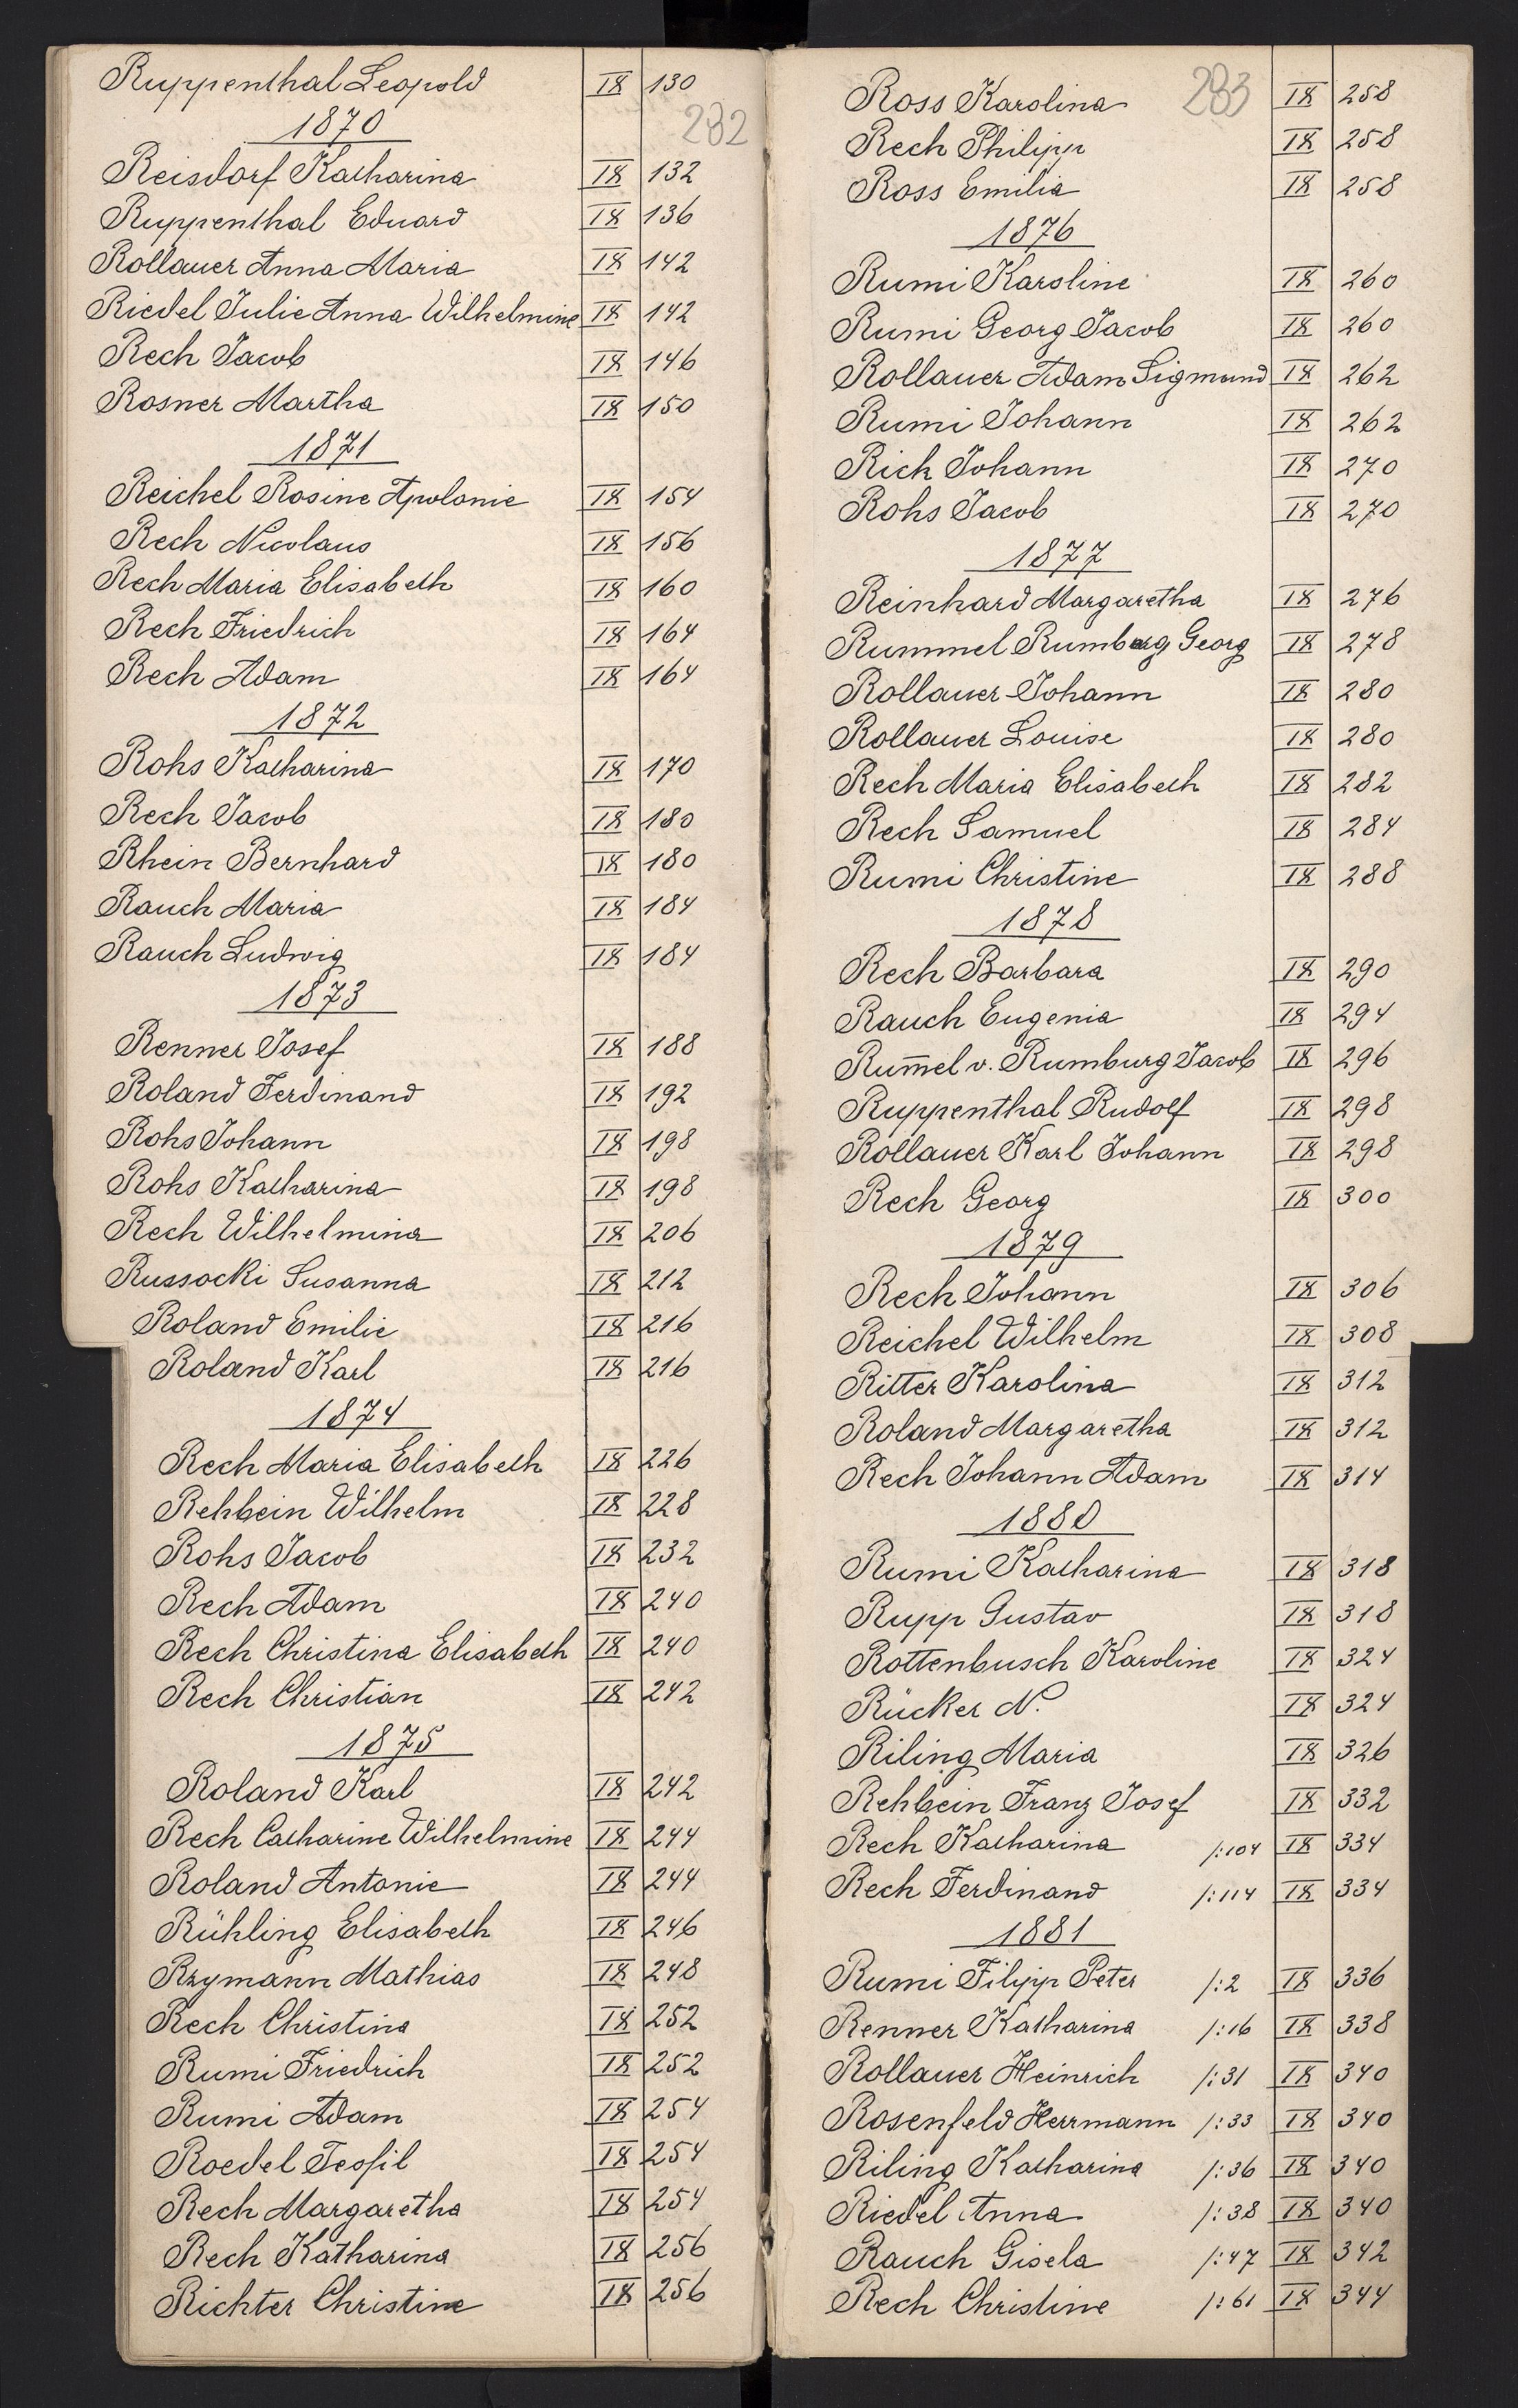 Ruppenthal Leopold IX 130
1870
282
Reisdorf Katharina IX 132
Ruppenthal Eduard IX 136
Rollauer Anna Maria IX 142
Riedel Julie Anna Wilhelmine IX 142
Rech Jacob IX 146
Rosner Martha IX 150
1871
Reichel Rosine Apolonie IX 154
Rech Nicolaus IX 156
Rech Maria Elisabeth IX 160
Rech Friedrich IX 164
Rech Adam IX 164
1872
Rohs Katharina IX 170
Rech Jacob IX 180
Rhein Bernhard IX 180
Rauch Maria IX 184
Rauch Ludwig IX 184
1873
Renner Josef IX 188
Roland Ferdinand IX 192
Rohs Johann IX 198
Rohs Katharina IX 198
Rech Wilhelmina IX 206
Russocki Susanna IX 212
Roland Emilie IX 216
Roland Karl IX 216
1874
Rech Maria Elisabeth IX 226
Rehbein Wilhelm IX 228
Rohs Jacob IX 232
Rech Adam IX 240
Rech Christina Elisabeth IX 240
Rech Christian IX 242
1875
Roland Karl IX 242
Rech Catharine Wilhelmine IX 244
Roland Antonie IX 244
Rühling Elisabeth IX 246
Rzymann Mathias IX 248
Rech Christina IX 252
Rumi Friedrich IX 252
Rumi Adam IX 254
Roedel Teofil IX 254
Rech Margaretha IX 254
Rech Katharina IX 256
Richter Christine IX 256
283
Ross Karolina IX 258
Rech Philipp IX 258
Ross Emilia IX 258
1876
Rumi Karoline IX 260
Rumi Georg Jacob IX 260
Rollauer Adam Sigmund IX 262
Rumi Johann IX 262
Rick Johann IX 270
Rohs Jacob IX 270
1877
Reinhard Margaretha IX 276
Rummel Rumburg Georg IX 278
Rollauer Johann IX 280
Rollauer Louise IX 280
Rech Maria Elisabeth IX 282
Rech Samuel IX 284
Rumi Christine IX 288
1878
Rech Barbara IX 290
Rauch Eugenia IX 294
Rum̅el v. Rumburg Jacob IX 296
Ruppenthal Rudolf IX 298
Rollauer Karl Johann IX 298
Rech Georg IX 300
1879
Rech Johann IX 306
Reichel Wilhelm IX 308
Ritter Karolina IX 312
Roland Margaretha IX 312
Rech Johann Adam IX 314
1880
Rumi Katharina IX 318
Rupp Gustav IX 318
Rottenbusch Karoline IX 324
Rücker N. IX 324
Riling Maria IX 326
Rehbein Franz Josef IX 332
Rech Katharina /:104 IX 334
Rech Ferdinand /:114 IX 334
1881
Rumi Filipp Peter /:2 IX 336
Renner Katharina /:16 IX 338
Rollauer Heinrich /:31 IX 340
Rosenfeld Herrmann /:33 IX 340
Riling Katharina /:36 IX 340
Riedel Anna /:38 IX 340
Rauch Gisela /:47 IX 342
Rech Christine /:61 IX 344